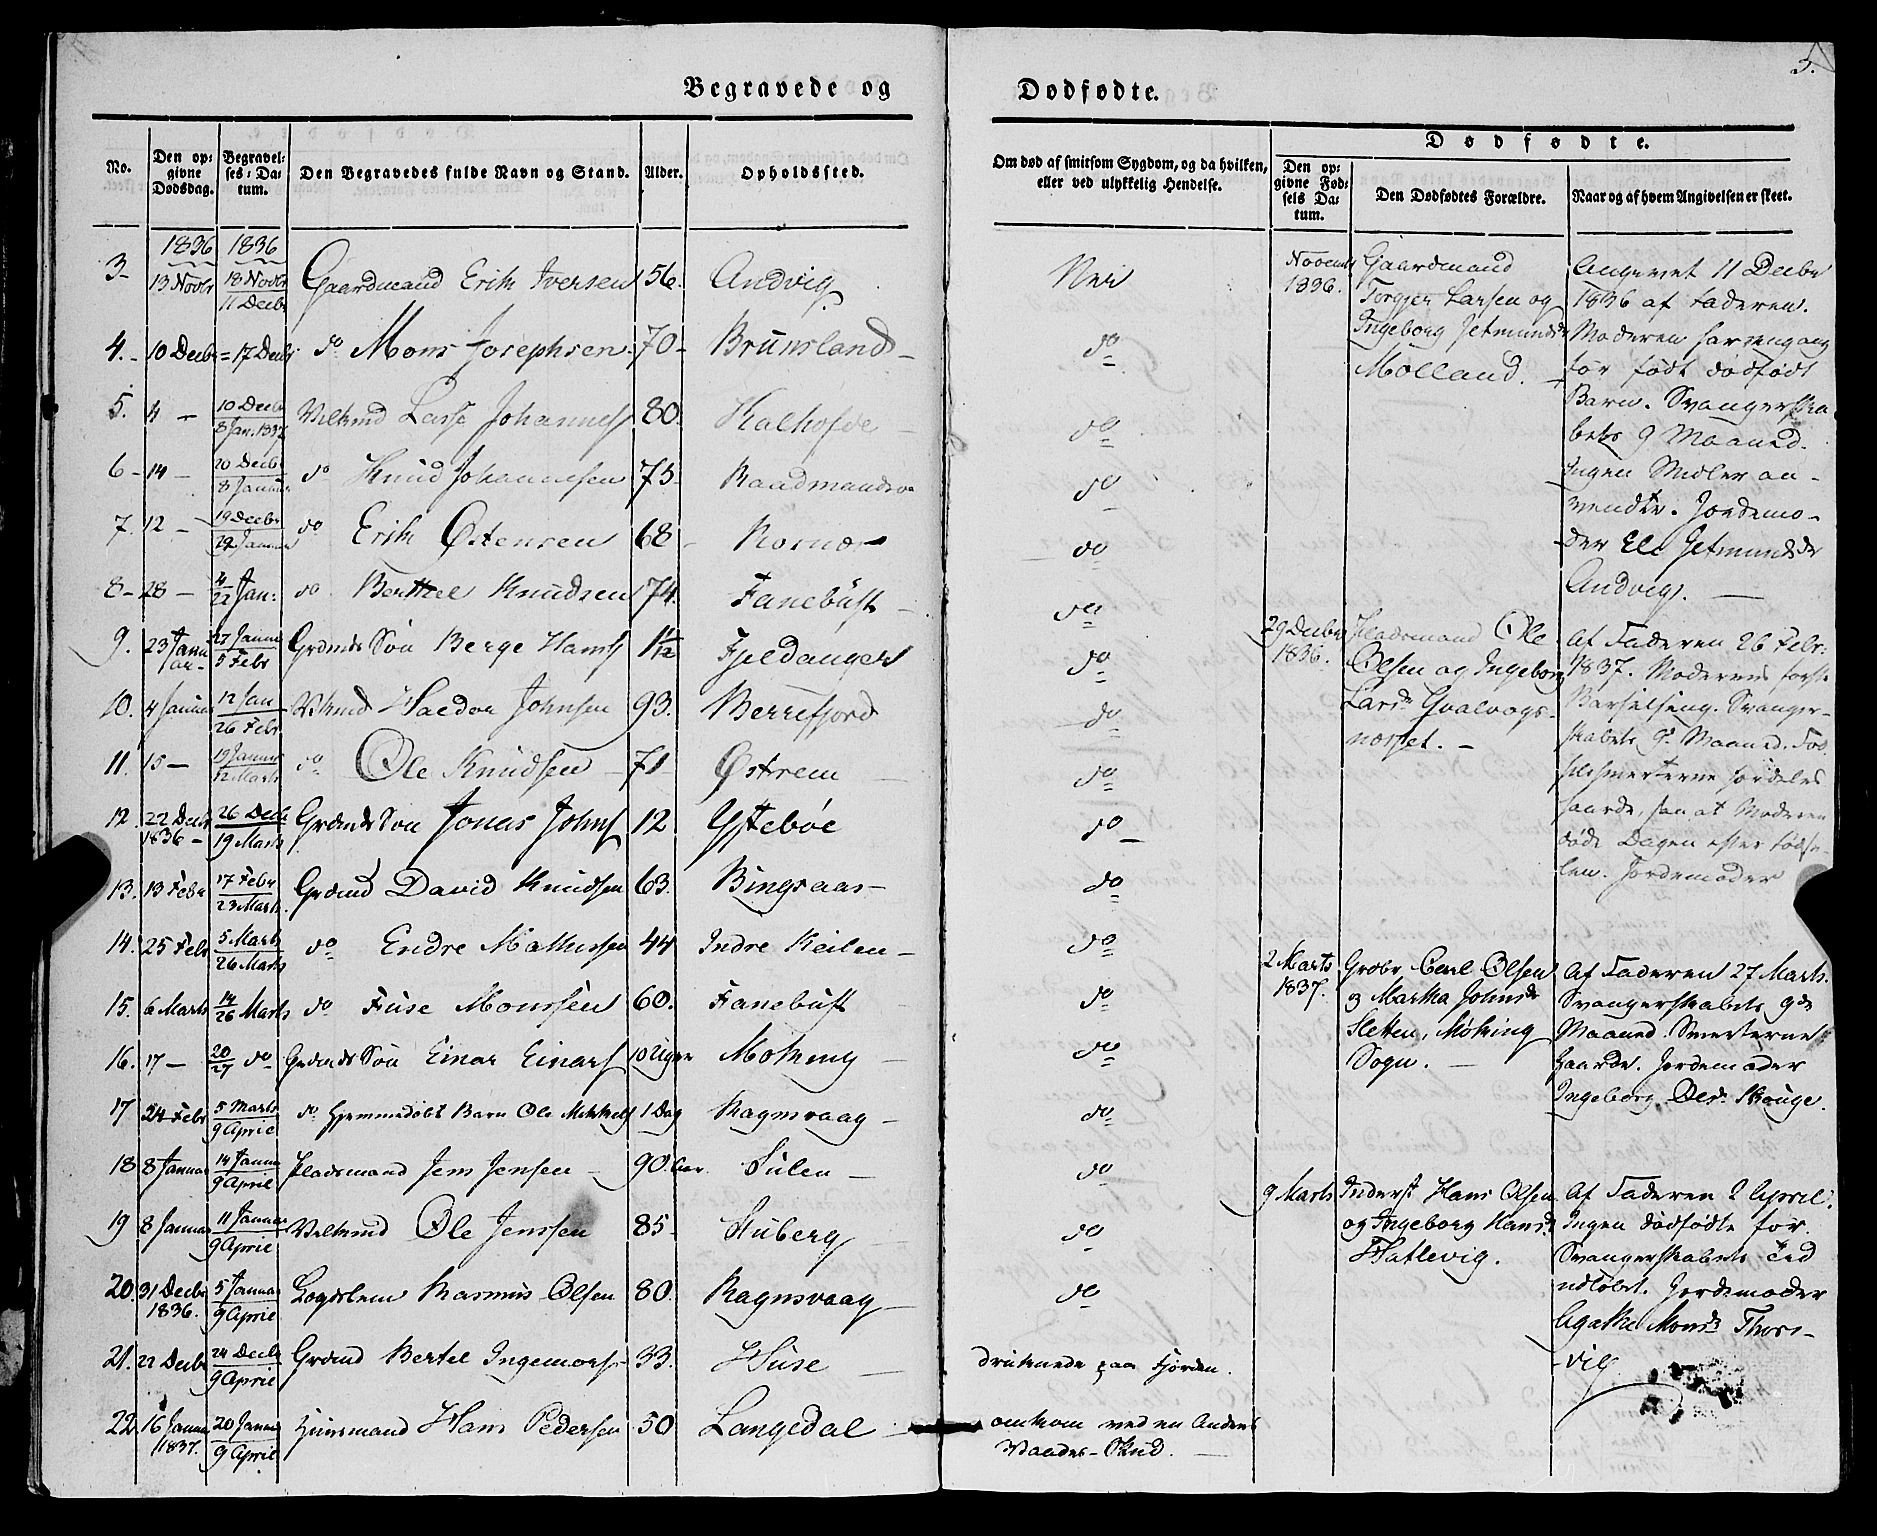 5.
Begravede og Dødfødte.
No.
Den op-
givne
Dødsdag.
Begravel-
ses-Da-
tum.
Den Begravedes fulde Navn og Stand.
Alder.
Opholdssted.
Om død af smitsom Sygdom, og da hvilken,
eller ved ulykkelig Hendelse.
Dødfødte.
Den op-
givne Fød-
sels Da-
tum.
Den Dødfødtes Forældre.
Naar og af hvem Angivelsen er skeet.
1836 1836
3- 13 Novbr 18 Novbr 11 Decbr Gaardmand Erik Iversen 56. Andvig Nei
4.- 10 Decbr = 17 Decbr do Mons Josephsen 70- Brunsland do
5. 4 - 10 Decbr 8 Jan. 1837 Lasse Johannes 80. Kalhofde do
6- 14 - 20 Decbr 8 Januar do Knud Johannesen 75 do
7. 12 - 19 Decbr 29 Januar do Erik Østensen 68 do
8- 28 - 4/22 Jan: do Berthel Knudsen 74. Fanebust do
9. 23 Janu ar- 27 Janua 5 Febr Grdmds Søn Berge Hans 1 1/12 Fjeldanger do
10. 4 Januar 12 Jan 26 Febr Haldor Johnsen 93. Berrefjord do
11. 15 - 19 Januar 12 Marts do Ole Knudsen 71 Østrem do
12. 22 Decbr 1836 - 26 Decbr 19 Marts Grdmds Søn Jonas Johns 12 Ystebøe do
13. 13 Febr 17 Febr 23 Marts Grdmd David Knudsen 63. Bingsaas do
14. 25 Febr 5 Marts 26 Marts do Endre Mathissen 44 Indre Keilen do
15. 6 Marts 14/26 Marts do Fuse Monssen 60. Fanebust do
16. 17 - 20/27 do Grdmds Søn Einar Einars 10 Uger Møkring do
17 24 Febr 5 Marts 9 April do hjemmedøbt Barn Ole Mikkels 1 Dag Ragnsvaag do
18 8 Januar 14 Janua 9 April Pladsmand Jens Jensen 90 Aar. Sulen do
19 8 Januar 11 Januar 9 April Ole Jenssen 85 Stuberg do
20. 31 Decbr 1836. 5 Januar 9 April Lægdslem Rasmus Olsen 80. Ragnsvaag do
21. 22 Decbr 24 Decbr 9 April Grdmd Bertel Ingemars 33. Huse druknede paa Fjorden.
22 16 Janua 1837. 20 Janua 9 April Huusmand Hans Pedersen 50 Langedal omkom ved en Andens
Vaades-Skud.
Novembr
1836.
Gaardmand
Torgjer Larsen og
Ingeborg Jetmundsdr
Molland.
Angivet 11 Decbr
1836 af Faderen.
Moderen har engang
før født dødfødt
Barn. Svangerska-
bets 9 Maaned.
Ingen Midler an-
vendte. Jordemo-
der Eli Jetmundsdr
Andvig.
29 Decbr
1836.
Pladsmand Ole
Olsen og Ingeborg
Larsdr Hvalvogs-
næsset. -
Af Faderen 26 Febr:
1837. Moderens første
Barselseng. Svanger-
skabets 9. Maaned. Fød
selssmerterne særdeles
haarde, saa at Moderen
døde Dagen efter Fødse-
len. Jordemoder
2 Marts
1837.
Grdbr. Carl Olsen
og Martha Johnsdr
Sletten, Møkring
Sogn.
Af Faderen 27 Marts.
Svangerskabets 9de
Maaned. Smerterne
haarde. Jordemoder
Ingeborg Skauge.
9 Marts
Inderst Hans Olsen
og Ingeborg Hansdr
Hatlevig.
Af Faderen 2 April.
Ingen dødfødte før.
Svangerskabets Tid
udløbet. Jordemoder
Agathe Monsdr Thors-
vig